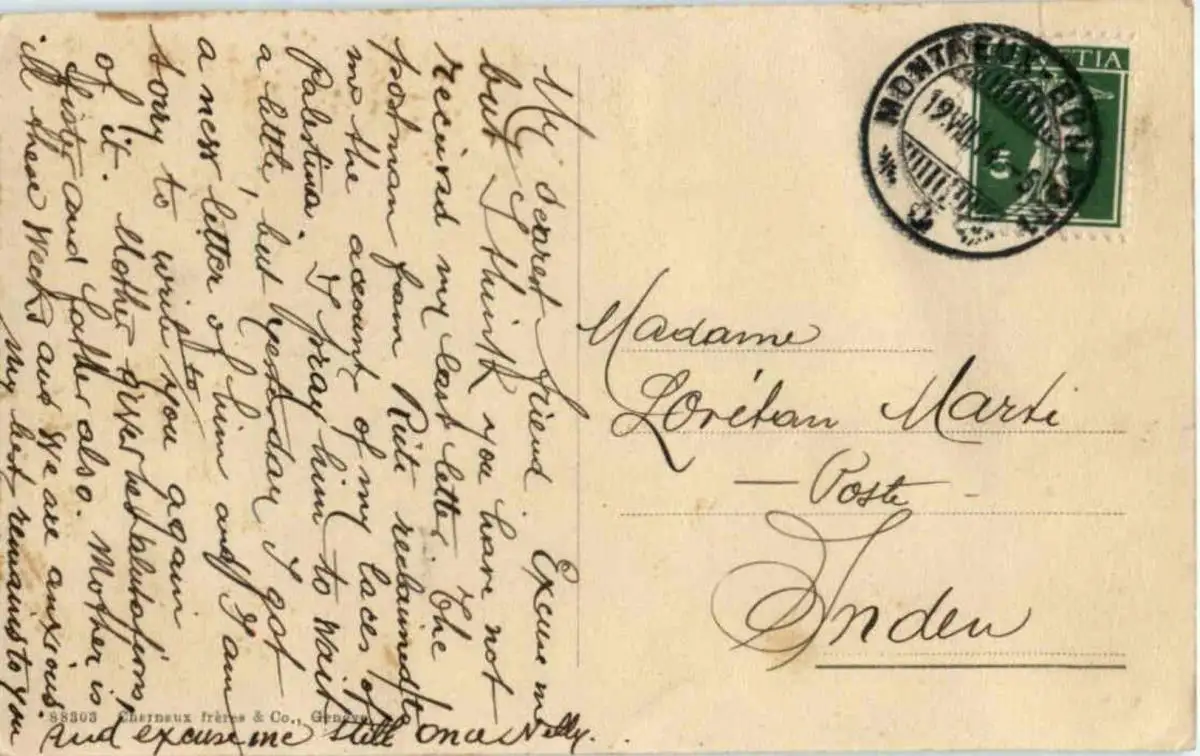 My dearest friend Excuse me
but I think you have not
received my last letter. The
postman from Rüte reclaimed to
me the account of my laces of
Palestina. I pray him to wait
a little, but yesterday I got
a new letter of him and I am
sorry to write to you again
of it. Mother gives her salutations,
Sister and father also. Mother is
ill these Weeks and We are anxious.
My best remains to you
and excuse me still once Nelly.
88303 Charnaux frères & Co., Genève
MONTREUX-BON PORT
19.VIII.14.-5
HELVETIA
5
Madame
Lorétan Marti
— Poste -
Inden